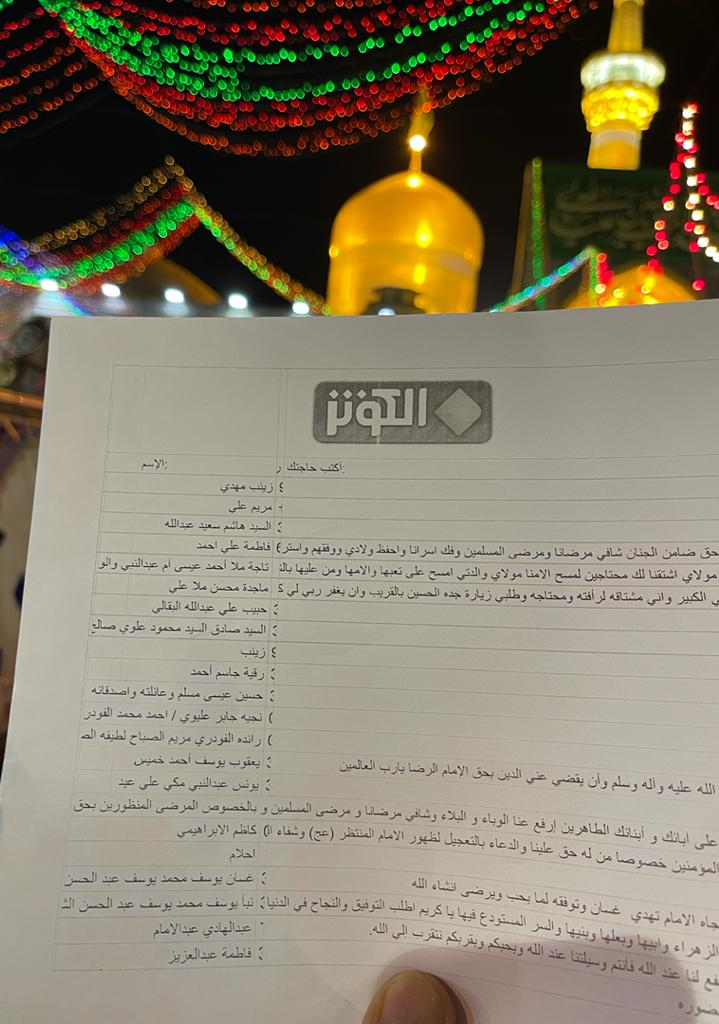 الكوثر
أكتب حاجتك:
الإسم:
زينب مهدي
مريم علي
السيد هاشم سعيد عبدالله
حق ضامن الجنان شافي مرضانا ومرضى المسلمين وفك اسرانا واحفظ ولادي ووفقهم واستر
فاطمة علي احمد
مولاي اشتقنا لك محتاجين لمسح الامنا مولاي والدتي امسح على تعبها والامها ومن عليها
تاجة ملا أحمد عيسى أم عبدالنبي
ي الكبير واني مشتاقه لرأفته ومحتاجه وطلبي زيارة جده الحسين بالقريب وان يغفر ربي لي
ماجدة محسن ملا علي
حبيب علي عبدالله البقالي
السيد صادق السيد محمود علوي
زينب
رقية جاسم أحمد
حسين عيسى مسلم وعائلته واصدقائه
نجيه جابر عليوي / احمد محمد
رائده الفودري مريم الصباح لطيفه
الله عليه وآله وسلم وأن يقضي عني الدين بحق الإمام الرضا يارب العالمين
يعقوب يوسف أحمد خميس
يونس عبدالنبي مكي علي عيد
على آبائك و أبنائك الطاهرين إرفع عنا الوباء و البلاء وشافي مرضانا و مرضى المسلمين و بالخصوص المرضى المنظورين بحق
المؤمنين خصوصا من له حق علينا والدعاء بالتعجيل لظهور الامام المنتظر (عج) وشفاء
كاظم الابراهيمي
احلام
جاه الامام تهدي غسان وتوفقه لما يحب ويرضى انشاء الله
غسان يوسف محمد يوسف عبد الحسن
الزهراء وابيها وبعلها وبنيها والسر المستودع فيها يا كريم اطلب التوفيق والنجاح في الدنيا
نبأ يوسف محمد يوسف عبد الحسن
فع لنا عند الله فأنتم وسيلتنا عند الله وبحبكم وبقربكم نتقرب الي الله.
عبدالهادي عبدالامام
فاطمة عبدالعزيز